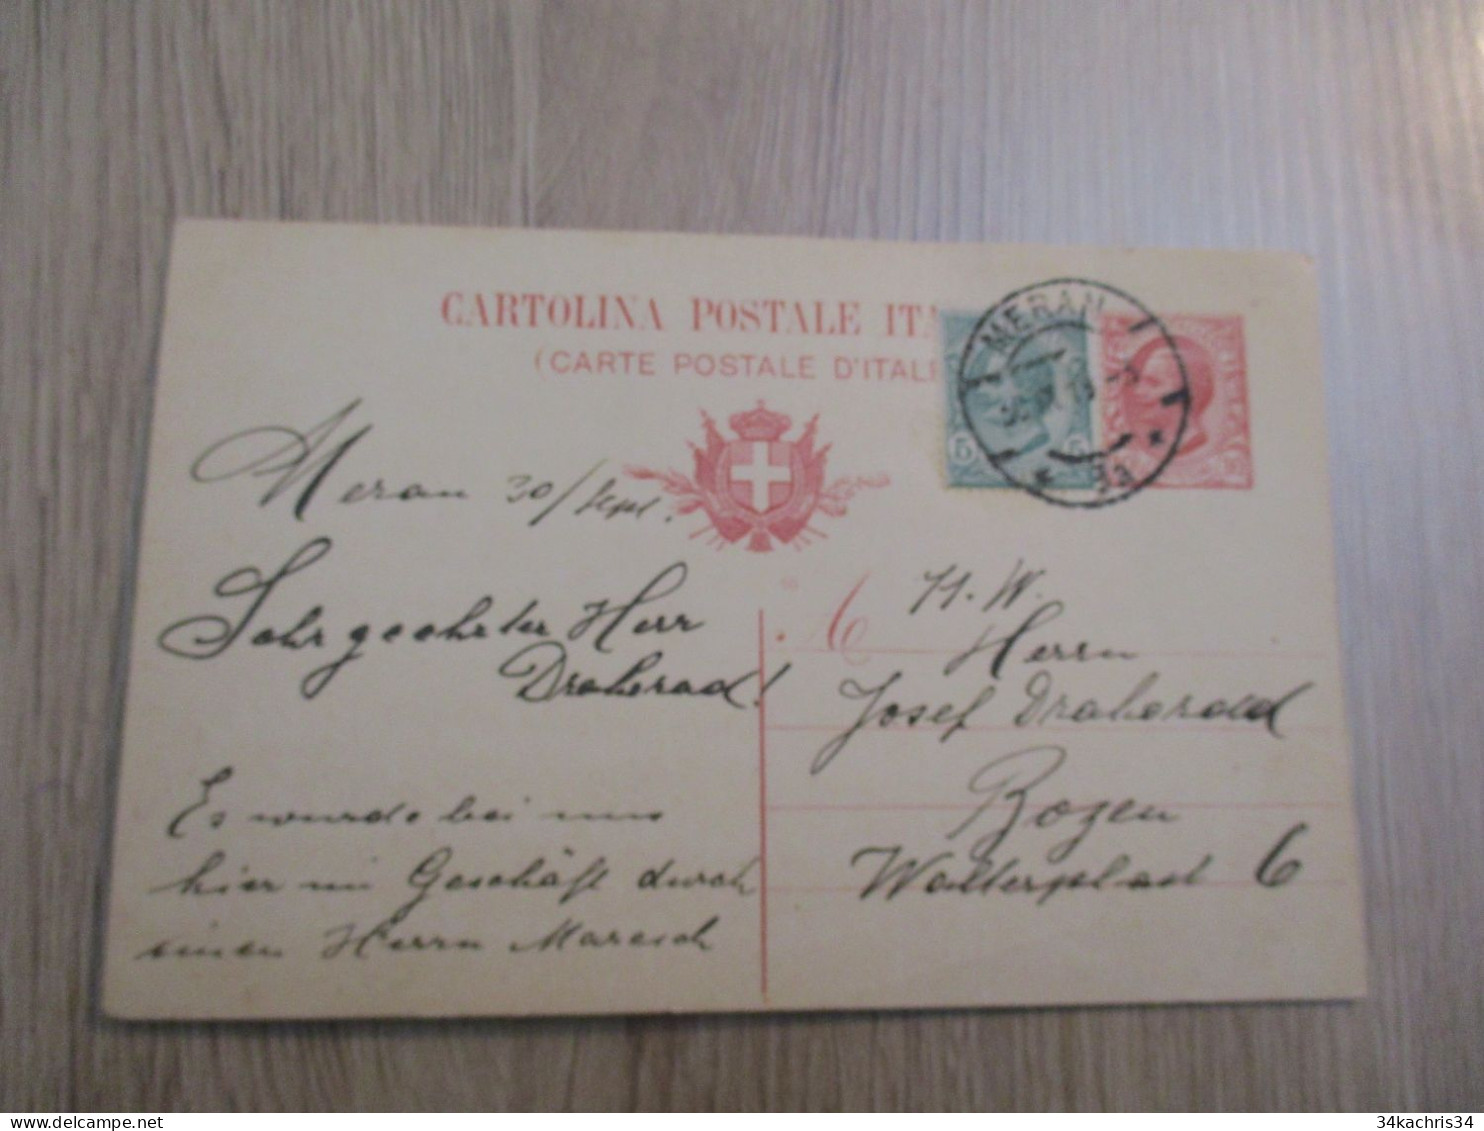 CARTOLINA POSTALE ITA
(CARTE POSTALE D'ITALI
MERAN
5
10
Meran 30/Sept.
Sehr geehrter Herr
Draherad!
Es wurde bei uns
hier im Geschäft durch
einen Herrn Maresch
H. W.
Herrn
Josef Draherad
Bozen
Waltherplatz 6
34kachris34